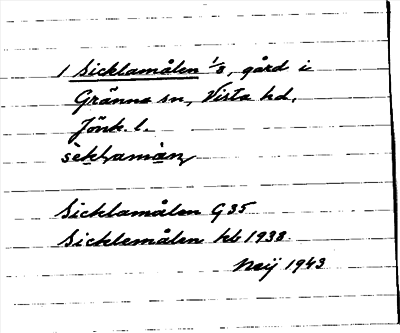 1 Sicklamålen 1/8, gård i
Gränna sn, Vista hd,
Jönk. l.
Sicklamålen G35
Sicklemålen kb 1938.
1943